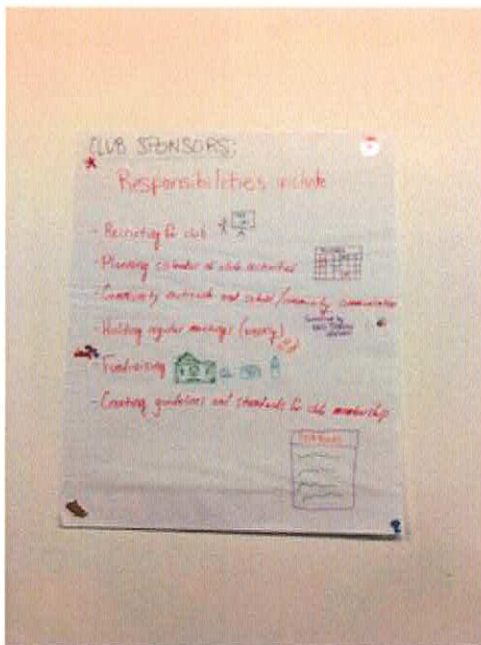 CLUB SPONSORS:
Responsibilities include
- Recruiting for club
- Planning calendar of club activities
- Community outreach and school/community communication
- Holding regular meetings (weekly)
- Fundraising
- Creating guidelines and standards for club membership